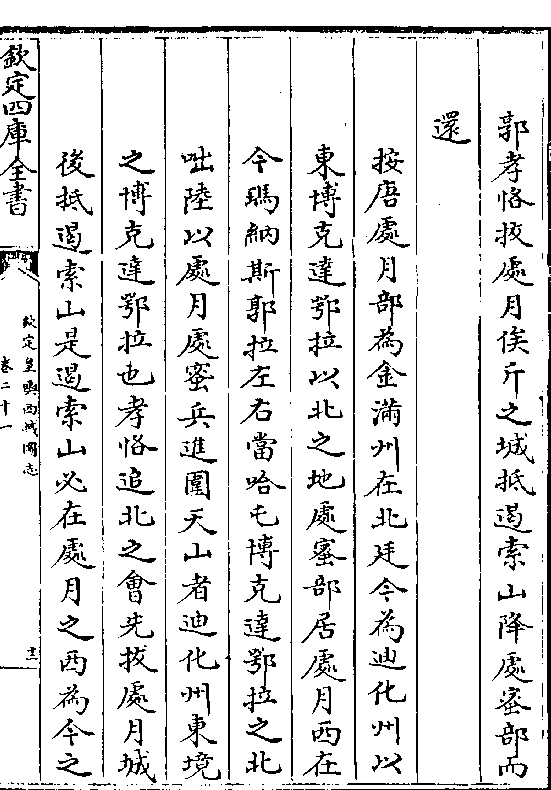 郭孝恪拔處月俟斤之城抵遏索山降處蜜部而
還
按唐處月部為金滿州在北廷今為迪化州以
東博克達鄂拉以北之地處蜜部居處月西在
今瑪納斯郭拉左右當哈屯博克達鄂拉之北
咄陸以處月處蜜兵進圍天山者迪化州東境
之博克達鄂拉也孝恪追北之會先拔處月城
後抵遏索山是遏索山必在處月之西為今之
欽定四庫全書
欽定皇輿西域圖志
卷二十一
十二